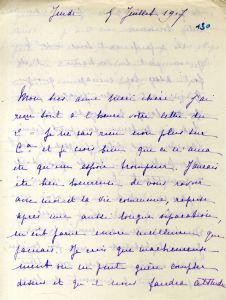 Jeudi 5 Juillet 1917
130
Mon bien aimé mon chéri J'ai
reçu tout à l'heure votre lettre du
1er Je ne sais rien non plus sur
et je crois bien que ce n'aura
été qu'un espoir trompeur. J'aurais
été bien heureuse de vous revoir
avec moi et la vie commune, reprise
après une aussi longue séparation,
m'eut parue encore meilleure que
jamais. Je crois que malheureuse
ment on ne peut guère compter
dessus et qu'il nous faudra attendre